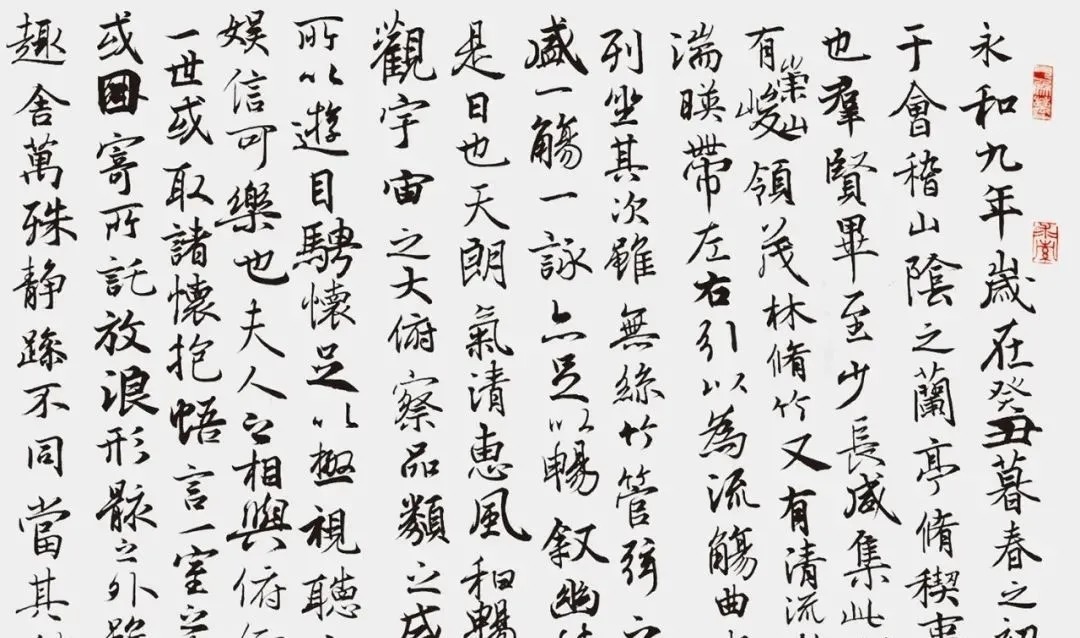 永和九年歲在癸丑暮春之初
于會稽山陰之蘭亭脩稧事
也羣賢畢至少長咸集此
有崇山峻領茂林脩竹又有清流
湍暎帶左右引以為流觴曲
列坐其次雖無絲竹管弦之
盛一觴一詠亦足以暢叙幽
是日也天朗氣清惠風和暢
觀宇宙之大俯察品類之盛
所以遊目騁懷足以極視聽
娛信可樂也夫人之相與俯仰
一世或取諸懷抱悟言一室之
或因寄所託放浪形骸之外雖
趣舍萬殊静躁不同當其